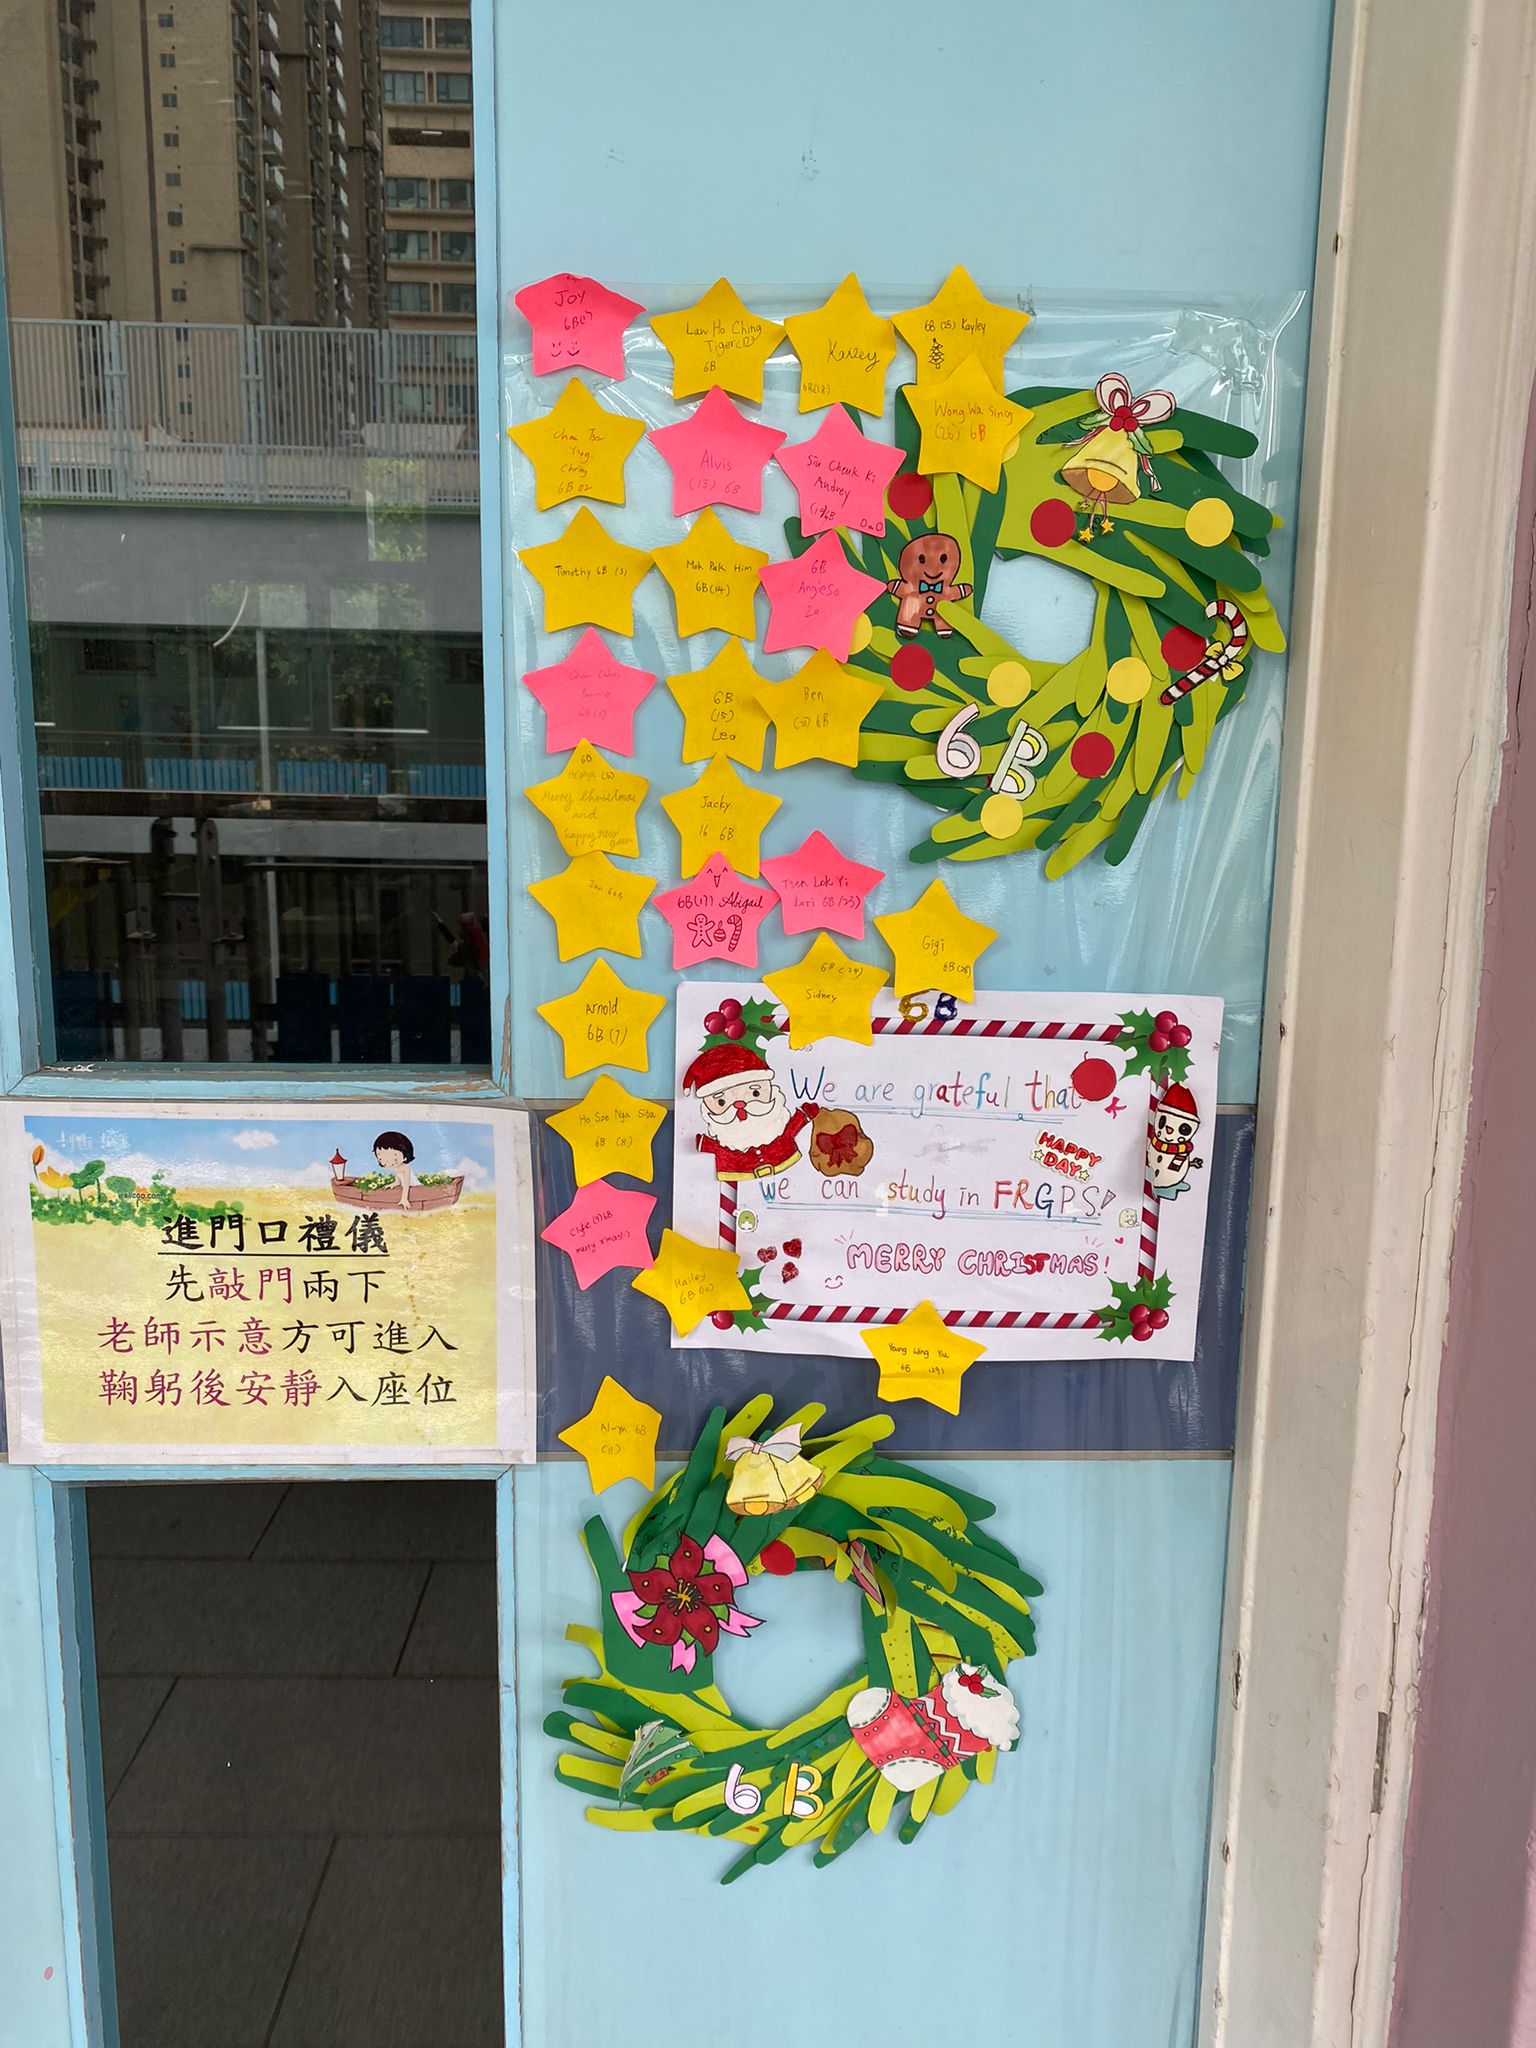 JOY
6B
Lau Ho Ching
Tiger(12)
6B
Kailey
6B(18)
6B (25) Kayley
Wong Wa Sing
(26) 6B
Chan Tsz
Ying
6B 02
Alvis
(13) 6B
Siu Cheuk Ki
Audrey
(19)6B OwO
Timothy 6B (3)
Mok Pak Him
6B(14)
6B
Angie So
20
Chan
6B
6B
(15)
Leo
Ben
6B
6B
Merry Christmas
and
happy new
year
Jacky
16 6B
Ian 6 6B
6B(17) Abigail
Tsen Lok Yi
Lori 6B (23)
Gigi
6B(28)
6B (24)
Sidney
Arnold
6B (7)
Ho Sze Nga
6B (8)
(9) 6B
merry x'mas!
Hailey
6B (10)
Yeung Wing Yu
6B (29)
6B
(11)
6B
6B
We are grateful that
HAPPY
DAY
we can study in FRGPS!
MERRY CHRISTMAS!
wallcoo.com
進門口禮儀
先敲門兩下
老師示意方可進入
鞠躬後安靜入座位
6B